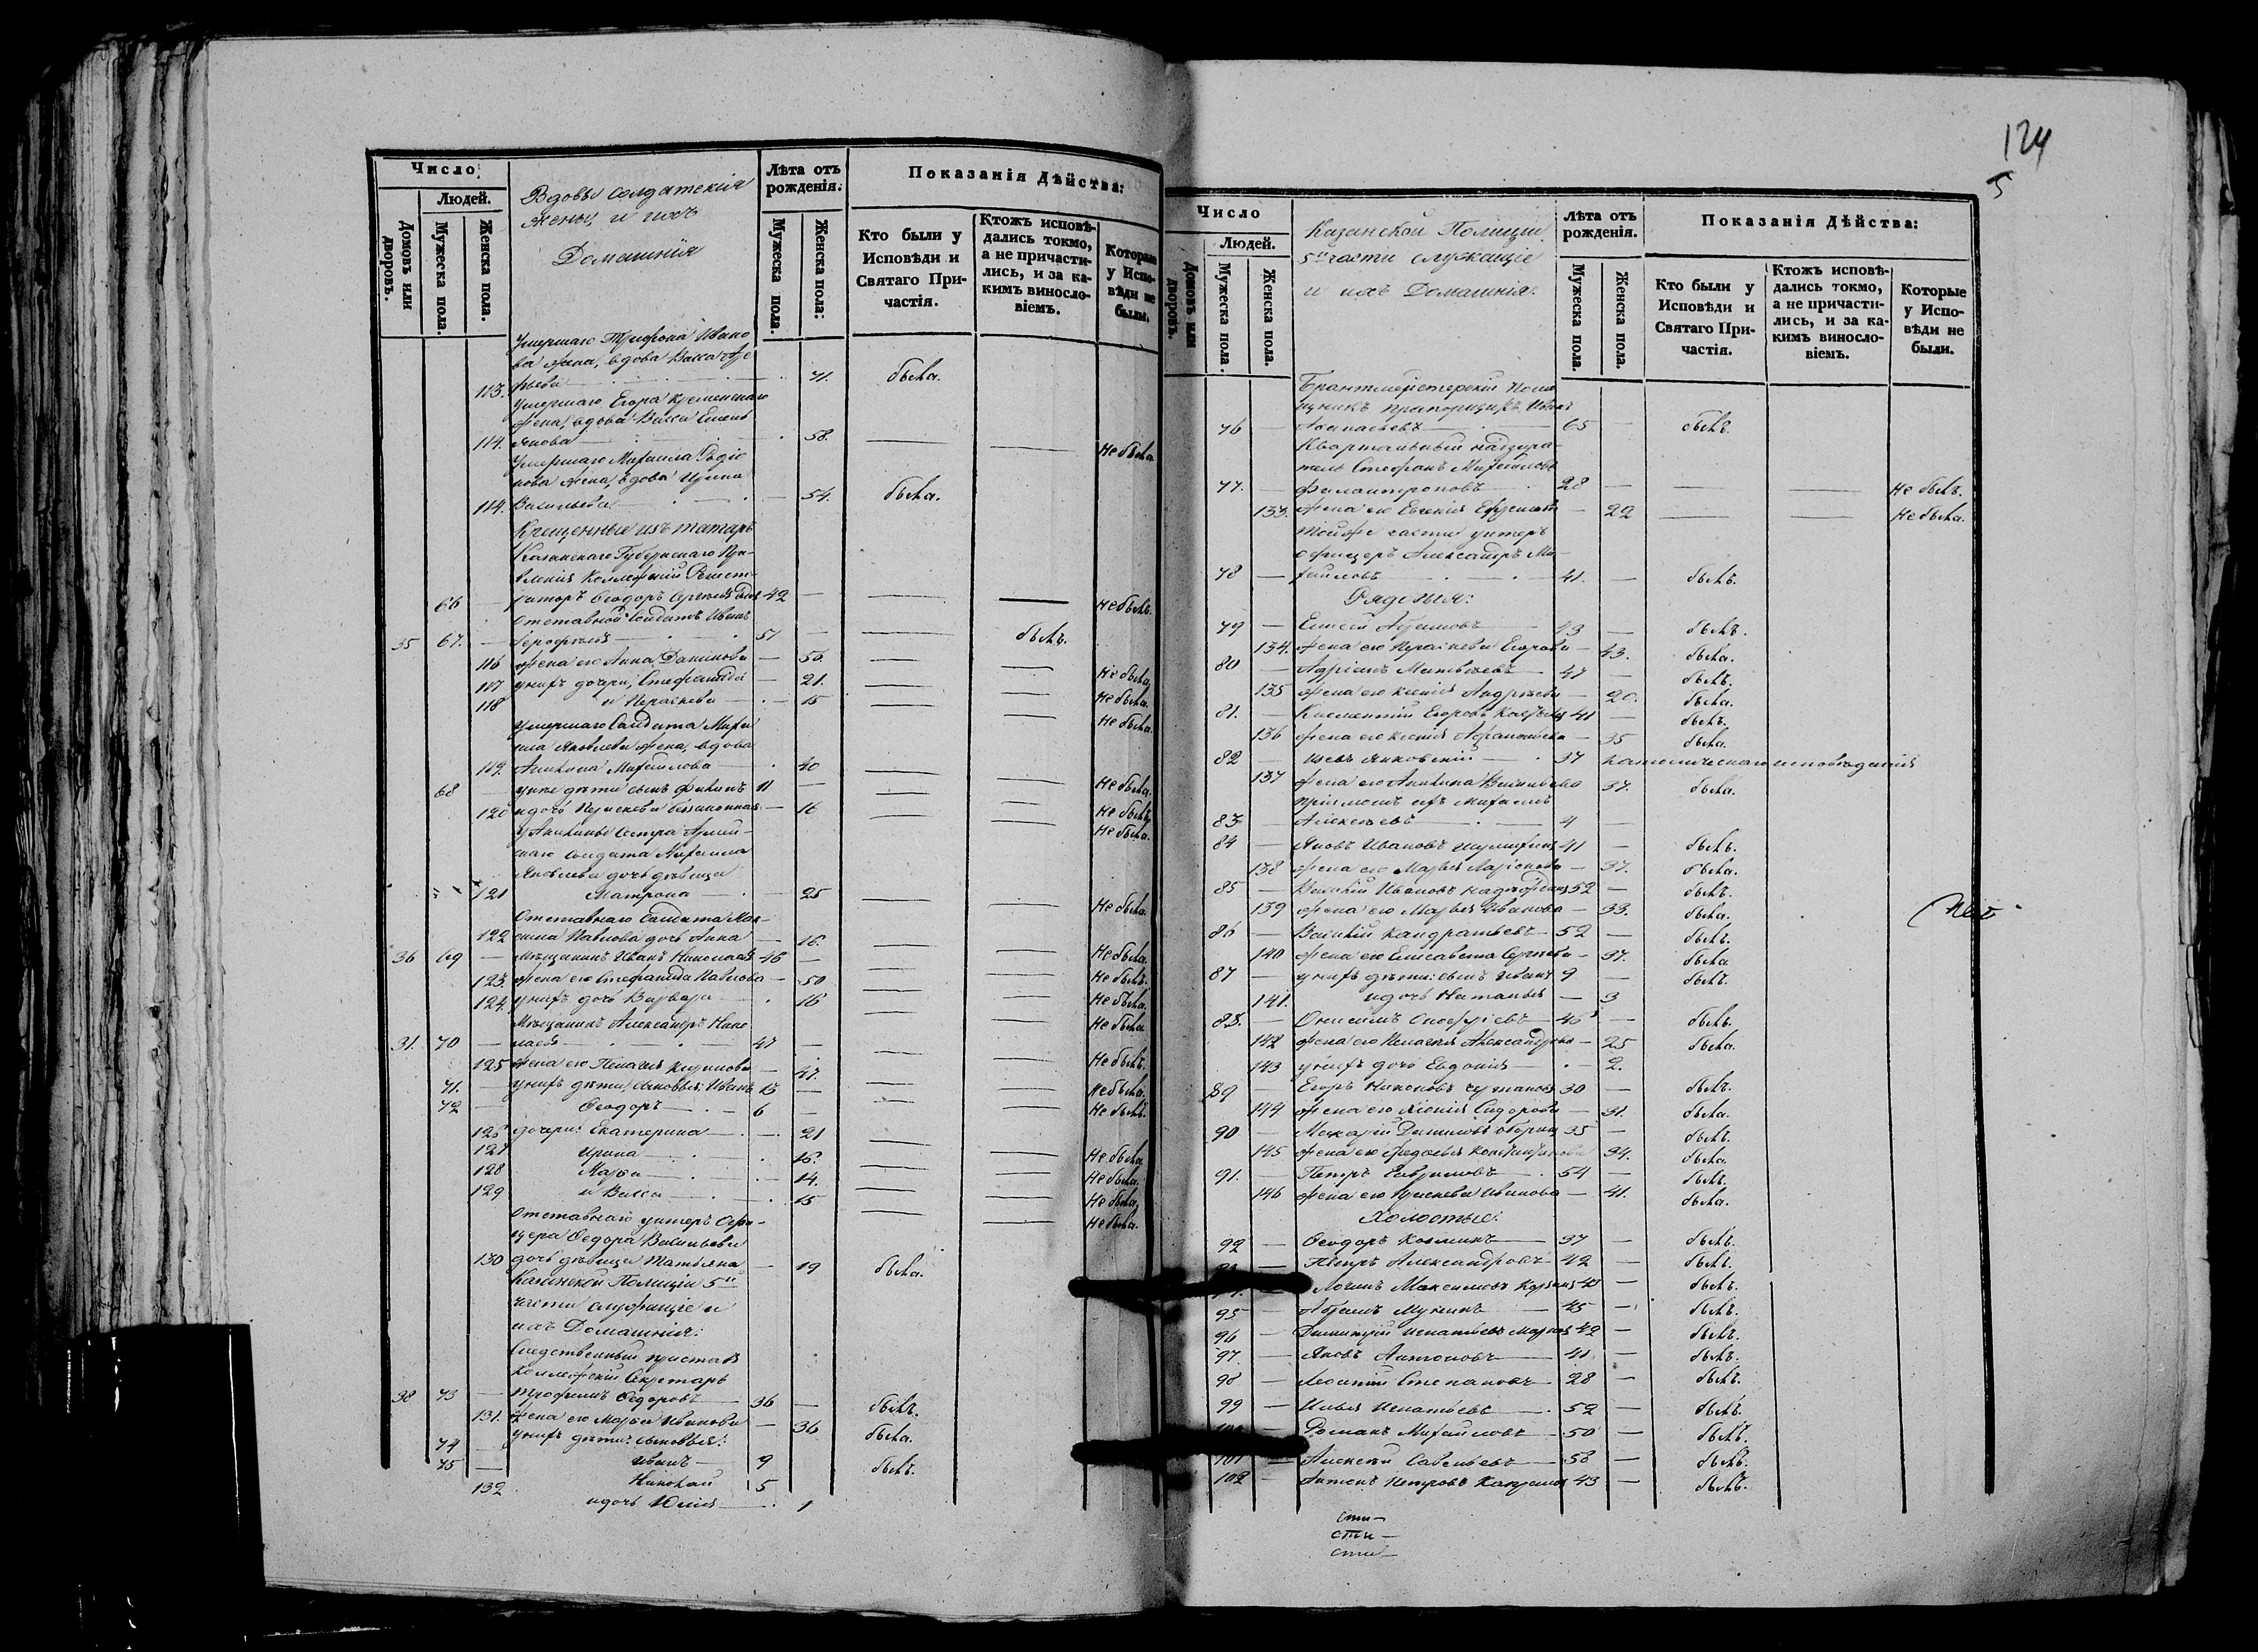 124
5
Число
Людей.
Домовъ или дворовъ.
Мужеска пола.
Женска пола.
Вдовы солдатскія
жены, и ихъ
Домашнія
Лѣта отъ рожденія.
Мужеска пола.
Женска пола:
Показанія Дѣйства:
Кто были у Исповѣди и Святаго Причастія.
Ктожъ исповѣдались токмо, а не причастились, и за какимъ винословіемъ.
Которые у Исповѣди не были.
Умершаго Трифона Ивано
ва жена, вдова Васса
113. 71. была.
Умершаго Егора
жена, вдова Васса Емель
114. янова 58. Не была.
Умершаго Михаила Родіо
нова жена, вдова Ирина
114. Васильева 54. была.
Крещенные изъ татаръ
Казанскаго Губернскаго Пра-
вленія Коллежскій Регист-
66 раторъ Ѳеодоръ 42 Не былъ.
Отставной Солдатъ Иванъ
35 67. 51 былъ.
116 жена его Анна Данилова 56. Не была.
117 у нихъ дочери, Стефанида 21. Не была.
118 и Параскева 15 Не была.
Умершаго Солдата Миха
ила Яковлева жена, вдова
119. Акилина Михайлова 40 Не была.
68 у нее дѣти сынъ 11 Не былъ.
120 и дочь 16 Не была.
у Акилины сестра
Солдата Михаила
Яковлева дочь дѣвица
121 Матрона 25 Не была.
Отставнаго Солдата Мак-
122 сима Павлова дочь Анна 16. Не была.
36 69 Мѣщанинъ Иванъ Николаевъ 46 Не былъ.
123. жена его Стефанида Павлова 50 Не была.
124. у нихъ дочь Варвара 16 Не была.
Мѣщанинъ Александръ Нико
31. 70 лаевъ 47 Не былъ.
125 жена его Пелагея 47. Не была.
71. у нихъ дѣти: сыновья: Иванъ 15 Не былъ.
72 Ѳеодоръ 6
126 дочери: Екатерина 21 Не была.
127 Ирина 16. Не была.
128 Марья 14. Не была.
129 и Васса 15 Не была.
Отставнаго унтеръ Офи-
цера Ѳедора Васильева
130 дочь дѣвица Татьяна 19 была.
Казанской Полиціи 5й
части служащіе и
ихъ Домашнія:
Слѣдственный приставъ
Коллежскій Секретарь
38 73 Трофимъ Ѳедоровъ 36 былъ.
131. жена его Марья Иванова 36 была.
у нихъ дѣти: сыновья:
74 Иванъ 9 былъ.
75 Николай 5
132 и дочь Юлія 1
Число
Людей.
Домовъ или дворовъ.
Мужеска пола
Женска пола.
Казанской Полиціи
5й части служащіе
и ихъ Домашнія:
Лѣта отъ рожденія.
Мужеска пола.
Женска пола.
Показанія Дѣйства:
Кто были у Исповѣди и Святаго Причастія.
Ктожъ исповѣдались токмо, а не причастились, и за какимъ винословіемъ.
Которые у Исповѣди не были.
Брантмейстерскій помо
щникъ прапорщикъ Иванъ
76 Афанасьевъ 65 былъ.
Квартальный надзира
тель Стефанъ Михайловъ
77. Филантроповъ 28 Не былъ.
133. жена его Евгенія 22 Не была.
Той же части унтеръ
офицеръ Александръ Ми-
78 хайловъ 41. былъ.
Рядовыя:
79 Елисей Абрамовъ 43 былъ.
134. жена его Параскева Егорова 43. была.
80 Адріанъ Матвѣевъ 47 былъ.
135 жена его Ксенія Андреева 20. была.
81. Климентій Егоровъ 41 былъ.
136 жена его Ксенія 35 была.
82 Янковскій 37 католическаго исповѣданія
137 жена его Акилина Васильева 37. была.
пріемышъ ихъ Михаилъ
83 Алексѣевъ 4
84 Яковъ Ивановъ 41 былъ.
138 жена его Марья Ларіонова 37. была.
85 Василій Ивановъ 52 былъ.
139 жена его Марья Иванова 33. была.
86 Василій Кандратьевъ 52 былъ.
140 жена его Елисавета Сергѣева 37. была
87 у нихъ дѣти: сынъ Иванъ 9 былъ.
141. и дочь Наталья 3
88. Онисимъ 45 былъ.
142 жена его Пелагея Александрова 25 была.
143 у нихъ дочь Евдокія 2.
89 Егоръ Никоновъ 30 былъ.
144 жена его Сидорова 31. была.
90 Макарій Даниловъ 35 былъ.
145 жена его Ѳедосья 34. была.
91. Петръ Гавриловъ 54 былъ.
146 жена его Иванова 41. была.
Холостые:
92 Ѳеодоръ Козминъ 37 былъ.
Петръ Александровъ 42 былъ.
Логинъ Максимовъ 43 былъ.
95 45 былъ.
96 Димитрій Игнатьевъ 42 былъ.
97. Яковъ Антоновъ 41 былъ.
98 Леонтій Степановъ 28 былъ.
99 Илья Игнатьевъ 52 былъ.
Романъ Михайловъ 50 былъ.
101 Алексѣй Савельевъ 58 былъ.
102 Антонъ Петровъ 43 былъ.